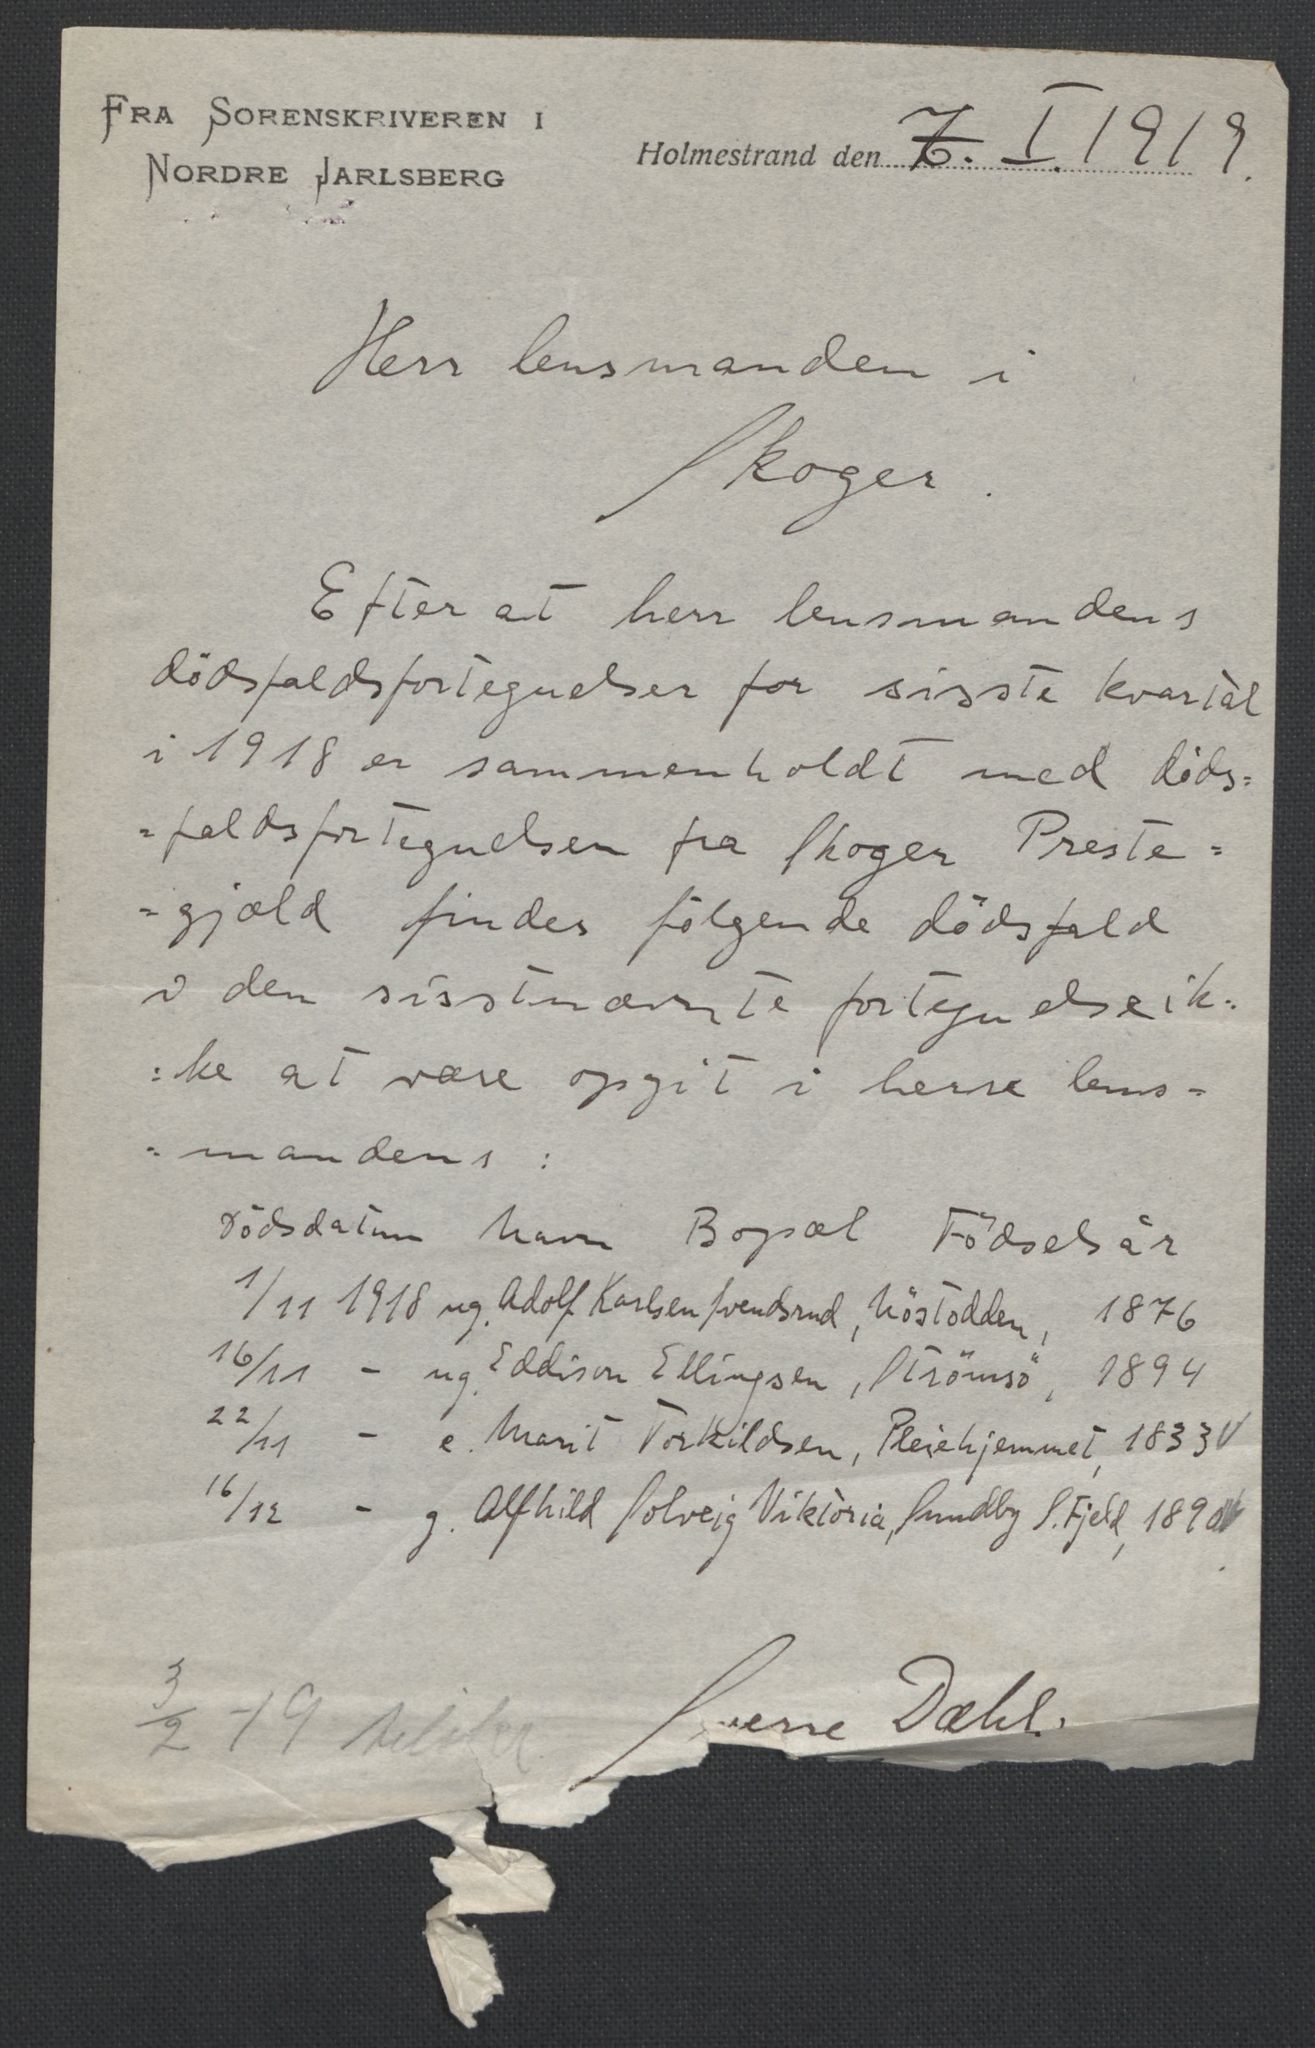 FRA SORENSKRIVEREN I
NORDRE JARLSBERG
Holmestrand den 7. I. 1919.
Herr lensmanden i
Skoger.
Efter at herr lensmandens
dödsfaldsfortegnelser for sisste kvartal
i 1918 er sammenholdt med döds=
=faldsfortegnelsen fra Skoger Preste=
=gjæld findes fölgende dödsfald
i den sisstnævnte fortegnelse ik=
=ke at være opgit i herr lens=
=mandens:
Dödsdatum Navn Bopæl Födselsår
1/11 1918 ug. Adolf Karlsen Svendsrud, Nöstodden, 1876
16/11 - ug. Eddison Ellingsen, Strömsö, 1894
22/11 - e. Marit Torkildsen, Pleiehjemmet, 1833 V
16/12 - g. Alfhild Solveig Viktoria, Sundby S. Fjeld, 1890
Sverre Dæhl.
3/2 -19